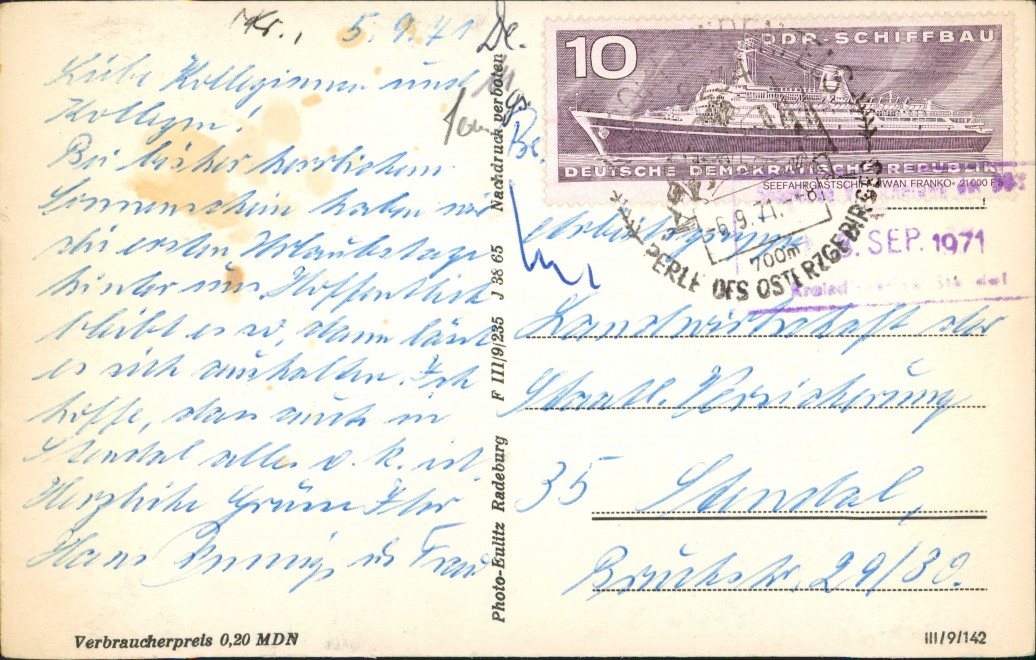 Kr.,
5.9.71
Liebe Kolleginnen und
Kollegen!
Bei bisher herrlichem
Sonnenschein haben wir
die ersten Urlaubstage
hinter uns. Hoffentlich
bleibt es so, dann läßt
es sich aushalten. Ich
hoffe, dass auch in
Stendal alles o.k. ist
Herzliche Grüße Ihr
Hans u. Frau
Verbraucherpreis 0,20 MDN
De.
Be.
Photo-Eulitz Radeburg F III/9/235 J 38 65 Nachdruck verboten
10
DDR-SCHIFFBAU
DEUTSCHE DEMOKRATISCHE REPUBLIK
SEEFAHRGASTSCHIFF »IWAN FRANKO« 21000 PS
-6.9.71.-8
700m
PERLE DES OSTERZGEBIRGES
SEP. 1971
Arbeitsgruppe
Landwirtschaft der
Staatl. Versicherung
35 Stendal,
Bruchstr. 29/30.
III/9/142